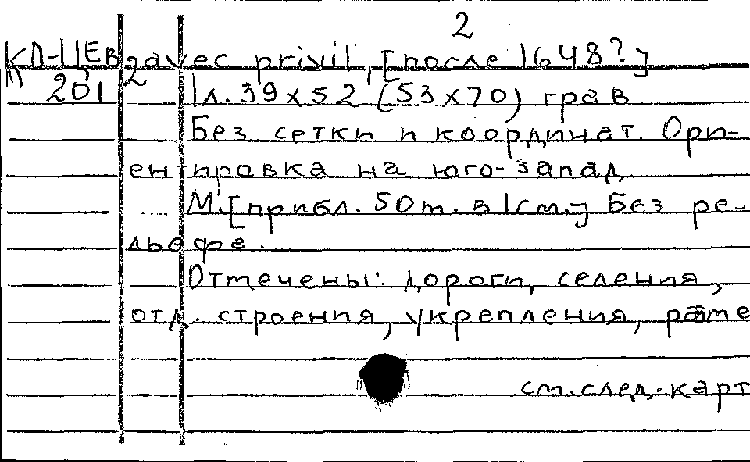 2
КП-ЦЕВ avec privil, [после 1648?]
201 2 1 л. 39 x 52 (53 x 70) грав
Без сетки и координат. Ори-
ентировка на юго-запад
М. [прибл. 50 т. в 1 см.] Без ре-
льефе.
Отмечены: дороги, селения,
отд. строения, укрепления,
см. след. карт